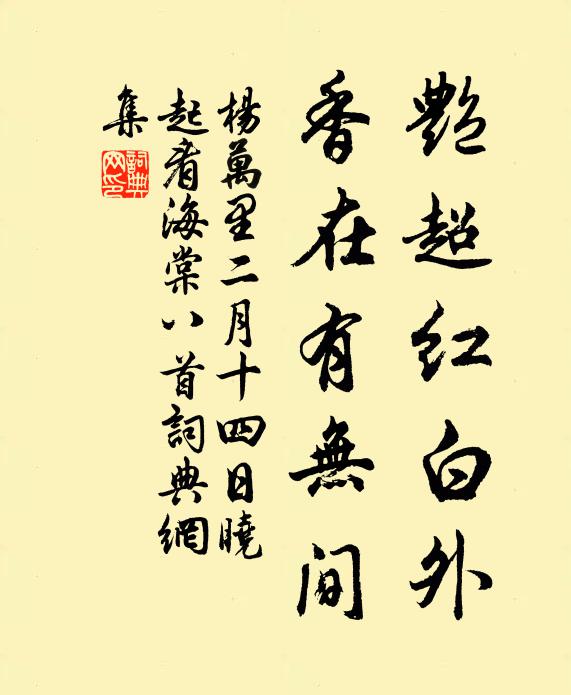 艷超紅白外
香在有無間
楊萬里二月十四日曉
起看海棠八首詞典網
集
詞典
网印